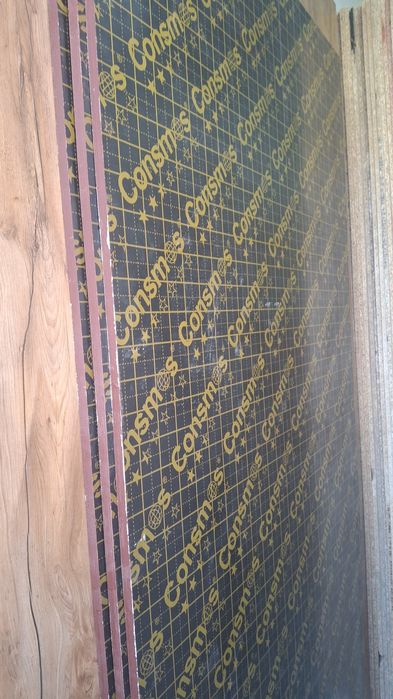 Consmos
Consmos
Consmos
Consmos
Consmos
Consmos
Consmos
Consmos
Consmos
Consmos
Consmos
Consmos
Consmos
Consmos
Consmos
Consmos
Consmos
Consmos
Consmos
Consmos